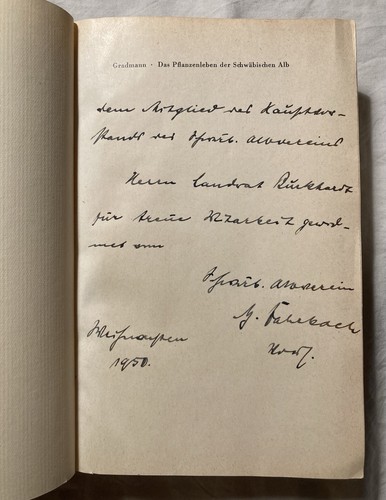 Gradmann · Das Pflanzenleben der Schwäbischen Alb
dem Mitglied des Hauptvor-
stands des Schwäb. Albvereins
Herrn Landrat Burkhardt
für treue Mitarbeit gewid-
met vom
Schwäb. Albverein
G. Fahrbach
Weihnachten
1950.